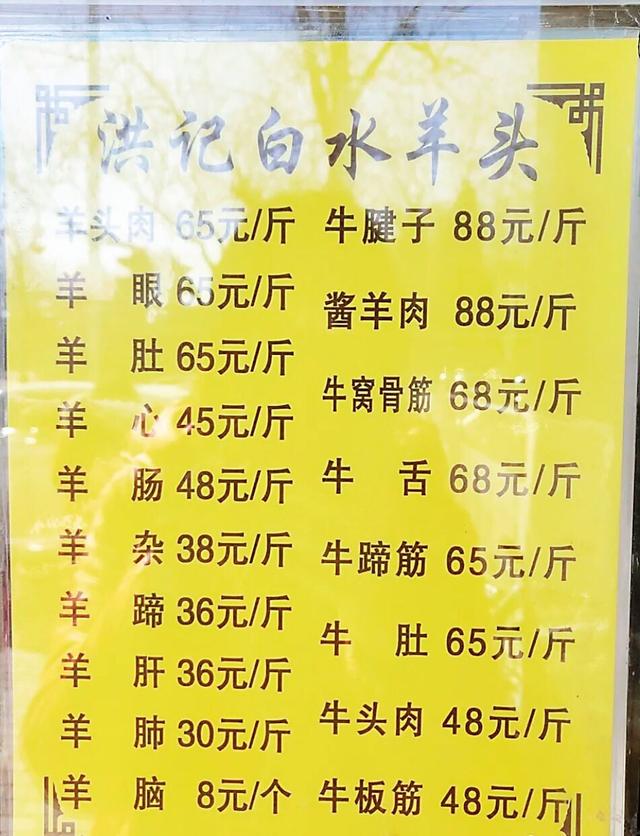 洪记白水羊头
羊头肉 65元/斤
羊 眼 65元/斤
羊 肚 65元/斤
羊 心 45元/斤
羊 肠 48元/斤
羊 杂 38元/斤
羊 蹄 36元/斤
羊 肝 36元/斤
羊 肺 30元/斤
羊 脑 8元/个
牛腱子 88元/斤
酱羊肉 88元/斤
牛窝骨筋 68元/斤
牛 舌 68元/斤
牛蹄筋 65元/斤
牛 肚 65元/斤
牛头肉 48元/斤
牛板筋 48元/斤